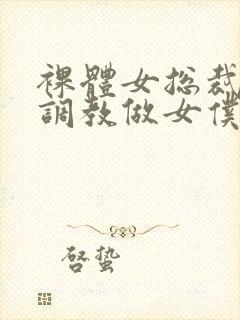 裸體女总裁
調教做女僕
啓蛰